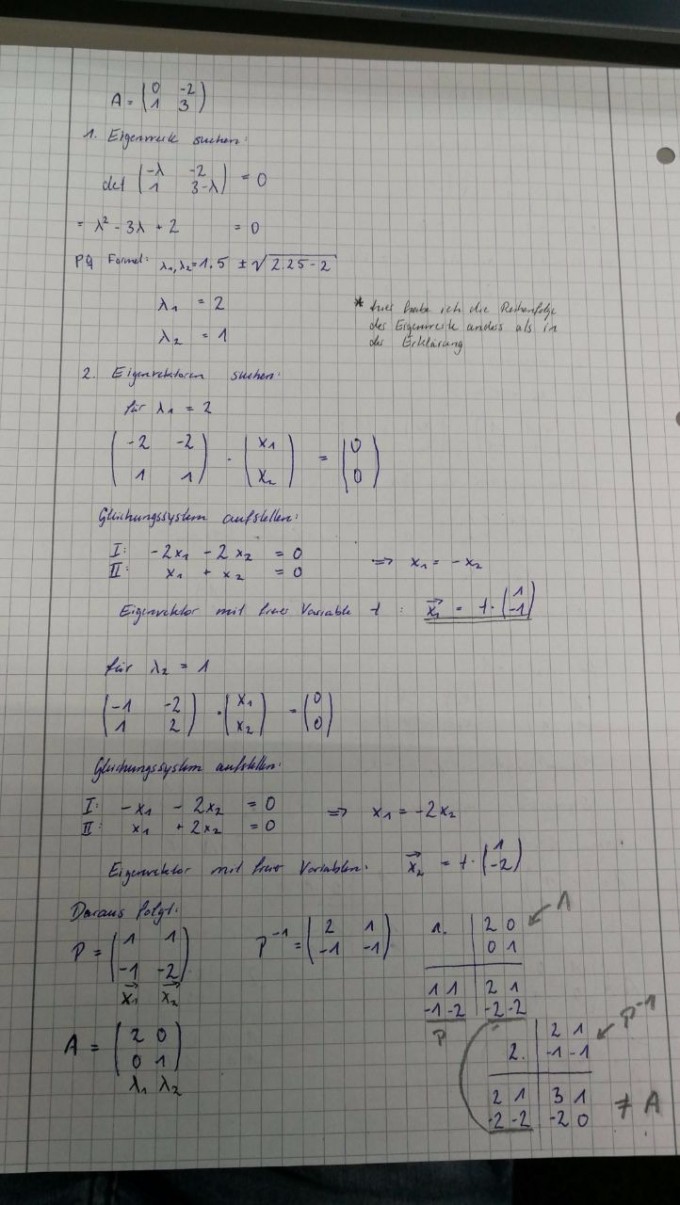 A = ( 0 -2
1 3 )
1. Eigenwerte suchen:
det ( -λ -2
1 3-λ ) = 0
= λ² - 3λ + 2 = 0
PQ Formel: λ1,λ2 = 1.5 ± √2.25 - 2
λ1 = 2
λ2 = 1
* hier habe ich die Reihenfolge
der Eigenwerte anders als in
der Erklärung
2. Eigenvektoren suchen:
für λ1 = 2
( -2 -2
1 1 ) · ( x1
x2 ) = ( 0
0 )
Gleichungssystem aufstellen:
I: -2x1 - 2x2 = 0 => x1 = -x2
II: x1 + x2 = 0
Eigenvektor mit freier Variable t: x1 = t · ( 1
-1 )
für λ2 = 1
( -1 -2
1 2 ) · ( x1
x2 ) = ( 0
0 )
Gleichungssystem aufstellen:
I: -x1 - 2x2 = 0 => x1 = -2x2
II: x1 + 2x2 = 0
Eigenvektor mit freier Variablen: x2 = t · ( 1
-2 )
Daraus folgt:
P = ( 1 1
-1 -2 )
x1 x2
P⁻¹ = ( 2 1
-1 -1 )
Λ = ( 2 0
0 1 )
λ1 λ2
1. | 2 0 Λ
| 0 1
1 1 | 2 1
-1 -2 | -2 -2
P
2. | 2 1 P⁻¹
| -1 -1
2 1 | 3 1
-2 -2 | -2 0 ≠ A